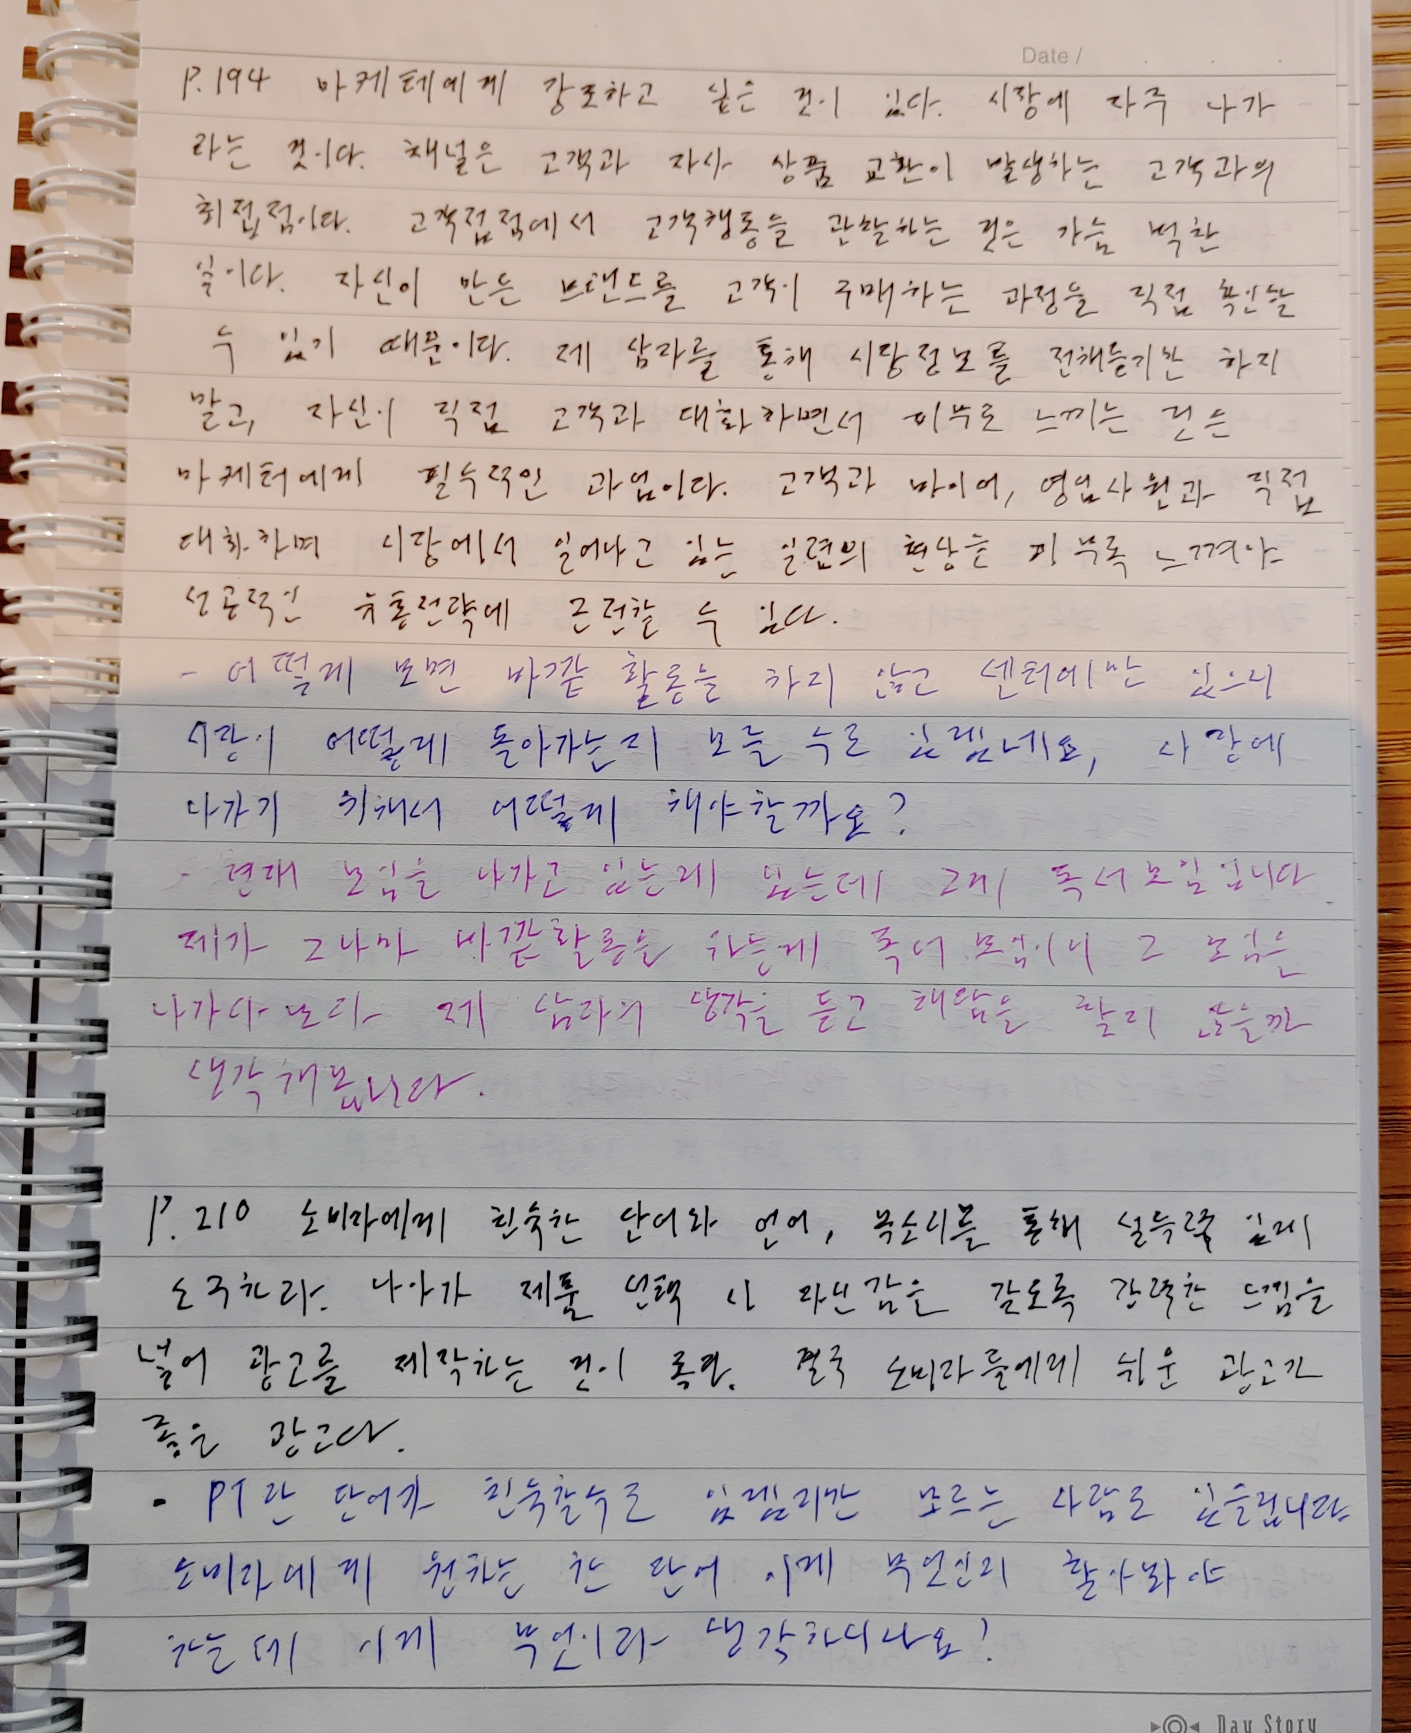 Date /
P.194 마케터에게 강조하고 싶은 것이 있다. 시장에 자주 나가
라는 것이다. 채널은 고객과 자사 상품 교환이 발생하는 고객과의
최접점이다. 고객접점에서 고객행동을 관찰하는 것은 가슴 벅찬
일이다. 자신이 만든 브랜드를 고객이 구매하는 과정을 직접 확인할
수 있기 때문이다. 제 삼자를 통해 시장정보를 전해듣기만 하지
말고, 자신이 직접 고객과 대화하면서 피부로 느끼는 것은
마케터에게 필수적인 과업이다. 고객과 바이어, 영업사원과 직접
대화하며 시장에서 일어나고 있는 일련의 현상을 피부로 느껴야
성공적인 유통전략에 근접할 수 있다.
- 어떻게 보면 바깥 활동을 하지 않고 센터에만 있으니
시장이 어떻게 돌아가는지 모를 수도 있겠네요, 시장에
나가기 위해서 어떻게 해야할까요?
- 현재 모임을 나가고 있는게 있는데 그게 독서모임입니다
제가 그나마 바깥활동을 하는게 독서모임이니 그 모임을
나가 제 삼자의 생각을 듣고 해답을 찾지 않을까
생각해봅니다.
P.210 소비자에게 친숙한 단어와 언어, 목소리를 통해 설득력 있게
소구하라. 나아가 제품 선택 시 자신감을 갖도록 강력한 느낌을
넣어 광고를 제작하는 것이 좋다. 결국 소비자들에게 쉬운 광고가
좋은 광고다.
- PT란 단어가 친숙할수도 있겠지만 모르는 사람도 있을겁니다
소비자에게 원하는 한 단어 이게 무엇인지 찾아봐야
하는데 이게 무엇이라 생각하시나요?
Day Story